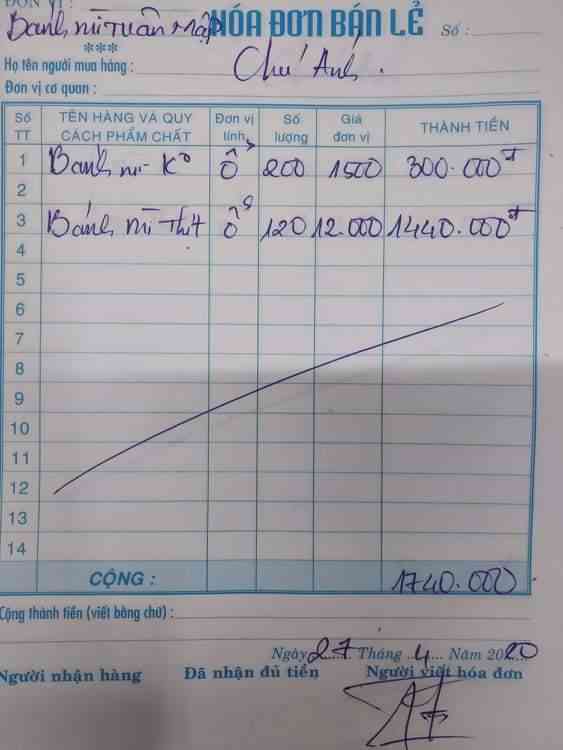 ĐƠN VỊ :
Bánh mì Tuấn Mập
HÓA ĐƠN BÁN LẺ
***
Số :
Họ tên người mua hàng : Chú Ánh.
Đơn vị cơ quan :
Số TT TÊN HÀNG VÀ QUY CÁCH PHẨM CHẤT Đơn vị tính Số lượng Giá đơn vị THÀNH TIỀN
1 Bánh mì K° ổ 200 1500 300.000đ
2
3 Bánh mì thịt ổ 120 12.000 1440.000đ
4
5
6
7
8
9
10
11
12
13
14
CỘNG : 1740.000
Cộng thành tiền (viết bằng chữ) :
Ngày 27 Tháng 4 Năm 2020
Người nhận hàng Đã nhận đủ tiền Người viết hóa đơn